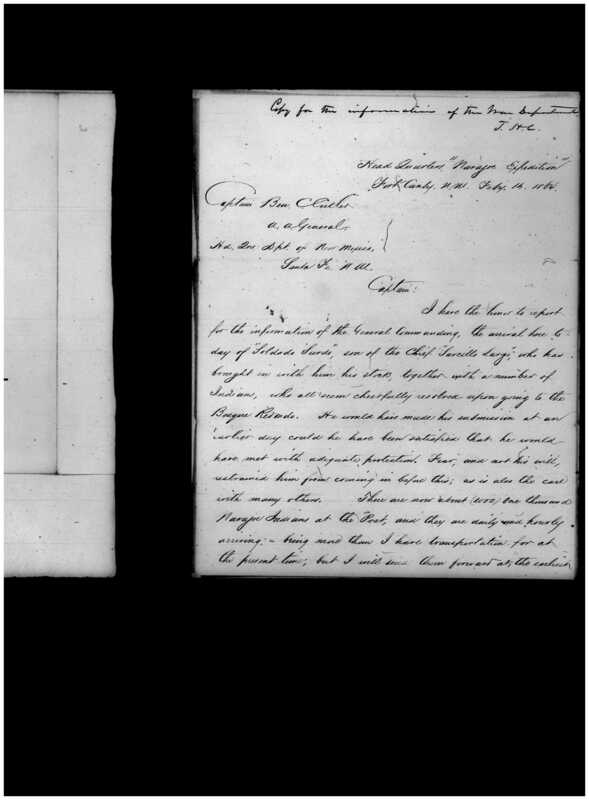 Copy for the information of the War Department
J. H. C.
Head Quarters, "Navajoe Expedition"
Fort Canby, N.M. Feby. 14. 1864.
Captain Ben. C. Cutler
A. A. General,
Hd. Qrs. Dept. of New Mexico,
Santa Fe N.M.
Captain:
I have the honor to report
for the information of the General Commanding, the arrival here to-
day of "Soldado Surdo", son of the Chief "Sarcillo Largo", who has
brought in with him his stock, together with a number of
Indians, who all seem cheerfully resolved upon going to the
Bosque Redondo. He would have made his submission at an
earlier day could he have been satisfied that he would
have met with adequate protection. Fear, and not his will,
restrained him from coming in before this; as is also the case
with many others. There are now about (1000) One thousand
Navajoe Indians at the Post, and they are daily and hourly
arriving - being more than I have transportation for at
the present time; but I will send them forward at the earliest